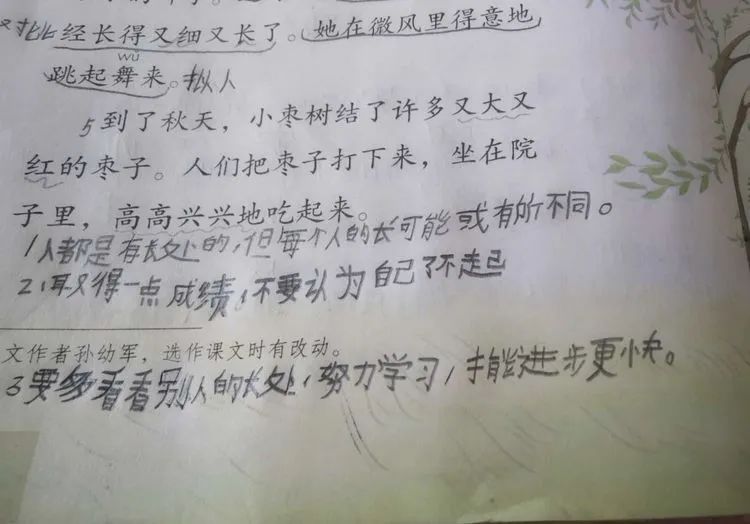 对比经长得又细又长了。她在微风里得意地
wǔ
跳起舞来。拟人
5到了秋天，小枣树结了许多又大又
红的枣子。人们把枣子打下来，坐在院
子里，高高兴兴地吃起来。
1人都是有长处的，但每个人的长可能或有所不同。
2，取得一点成绩，不要认为自己了不起
文作者孙幼军，选作课文时有改动。
3要多看看别人的长处，努力学习，才能进步更快。